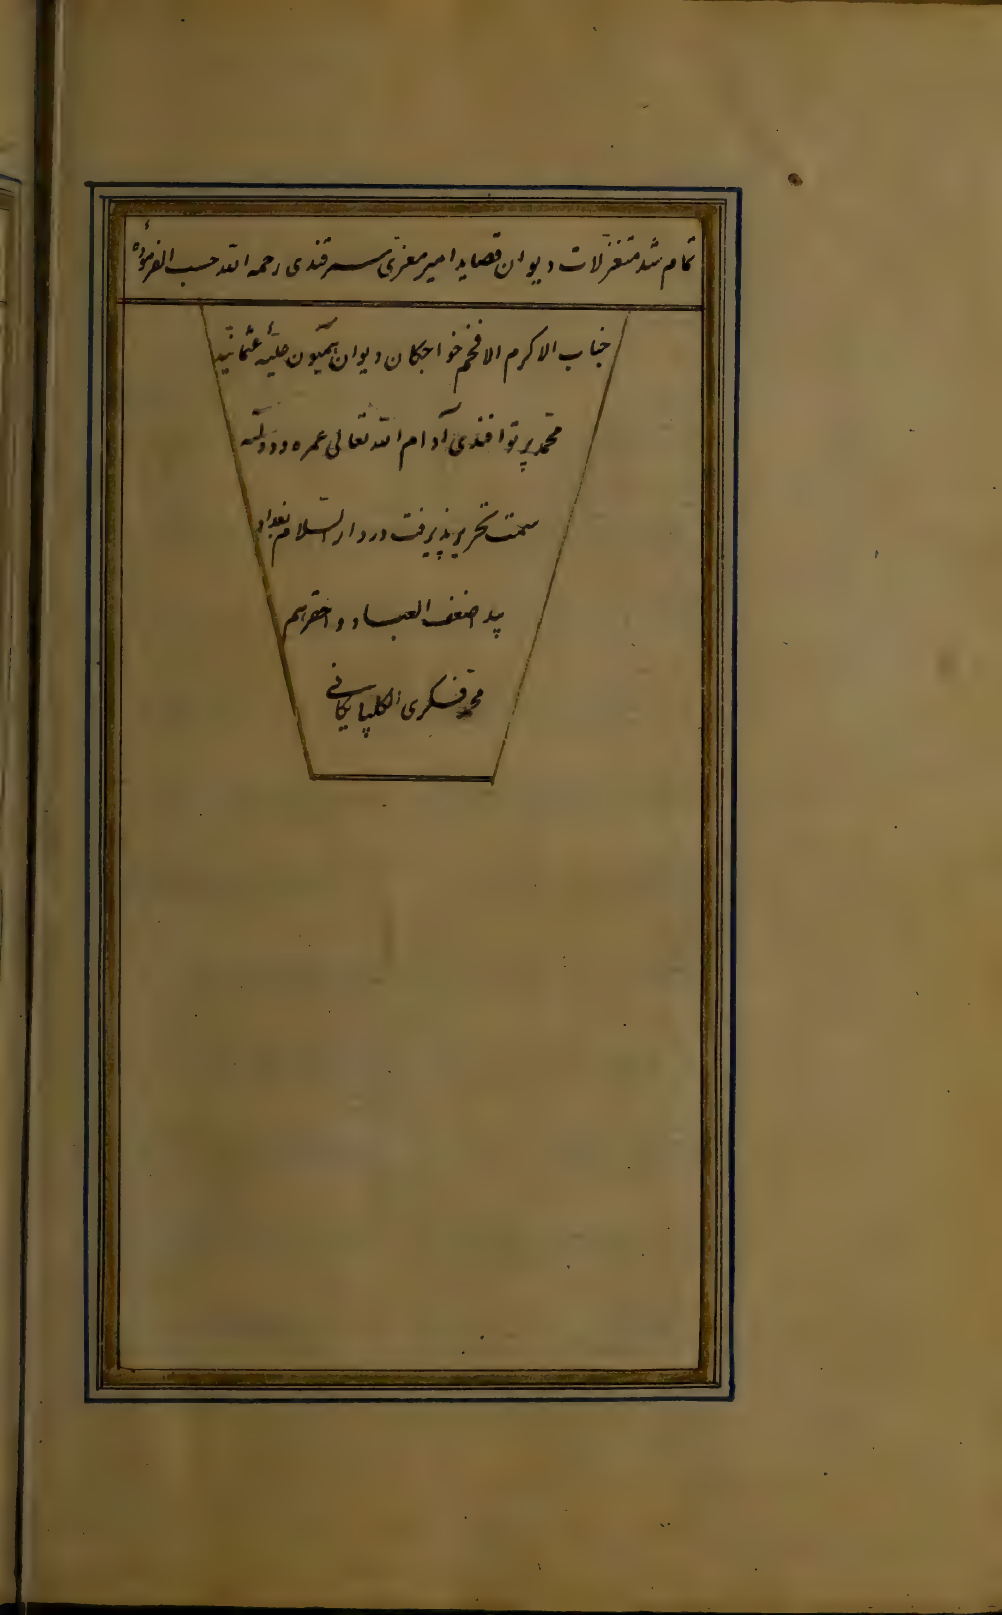 تمام شد متغزلات دیوان قصاید امیر معزی سمرقندی رحمه الله حسب الفرمودهٔ
جناب الاکرم الافخم خواجکان دیوان همیون علیّهٔ عثمانیّه
محمد پرتو افندی آدام الله تعالی عمره و دولته
سمت تحریر پذیرفت در دار السّلام بغداد
بید اضعف العباد و احقرهم
محمد الکلپایکانی